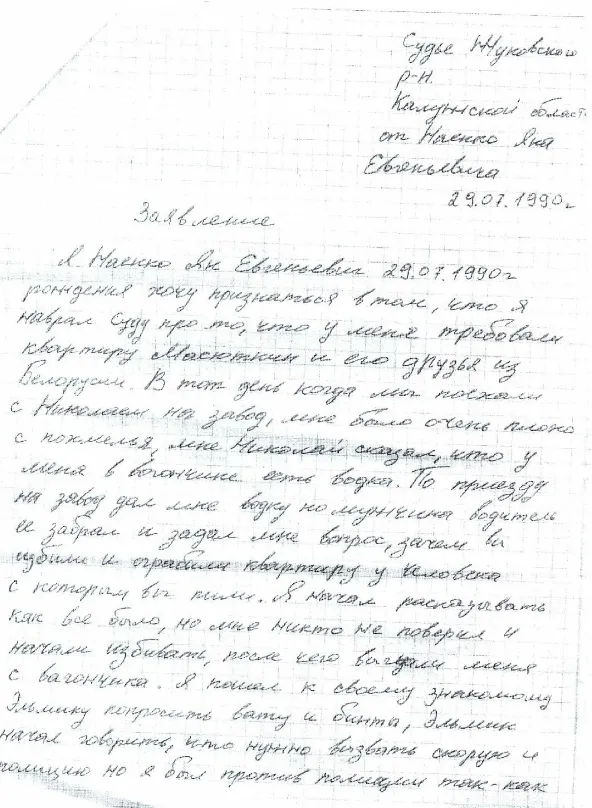 Судье Жуковского
р-н.
Калужской област
от Наенко Яна
Евгеньевича
29.07.1990г
Заявление
Я. Наенко Ян Евгеньевич 29.07.1990г
рождения хочу признаться в том, что я
наврал суду про то, что у меня требовали
квартиру Масюткин и его друзья из
Белорусии. В тот день когда мы поехали
с Николаем на завод, мне было очень плохо
с похмелья, мне Николай сказал, что у
меня в вогончике есть водка. По приезду
на завод дал мне водку но мужчина водитель
ее забрал и задал мне вопрос, зачем вы
избили и ограбили квартиру у человека
с которым вы пили. Я начал расказывать
как все было, но мне никто не поверил и
начали избивать, после чего выгнали меня
с вагончика. Я пошол к своему знакомому
Эльмику попросить вату и бинты, Эльмик
начал говорить, что нужно вызвать скорую и
полицию но я был против полиции так-как